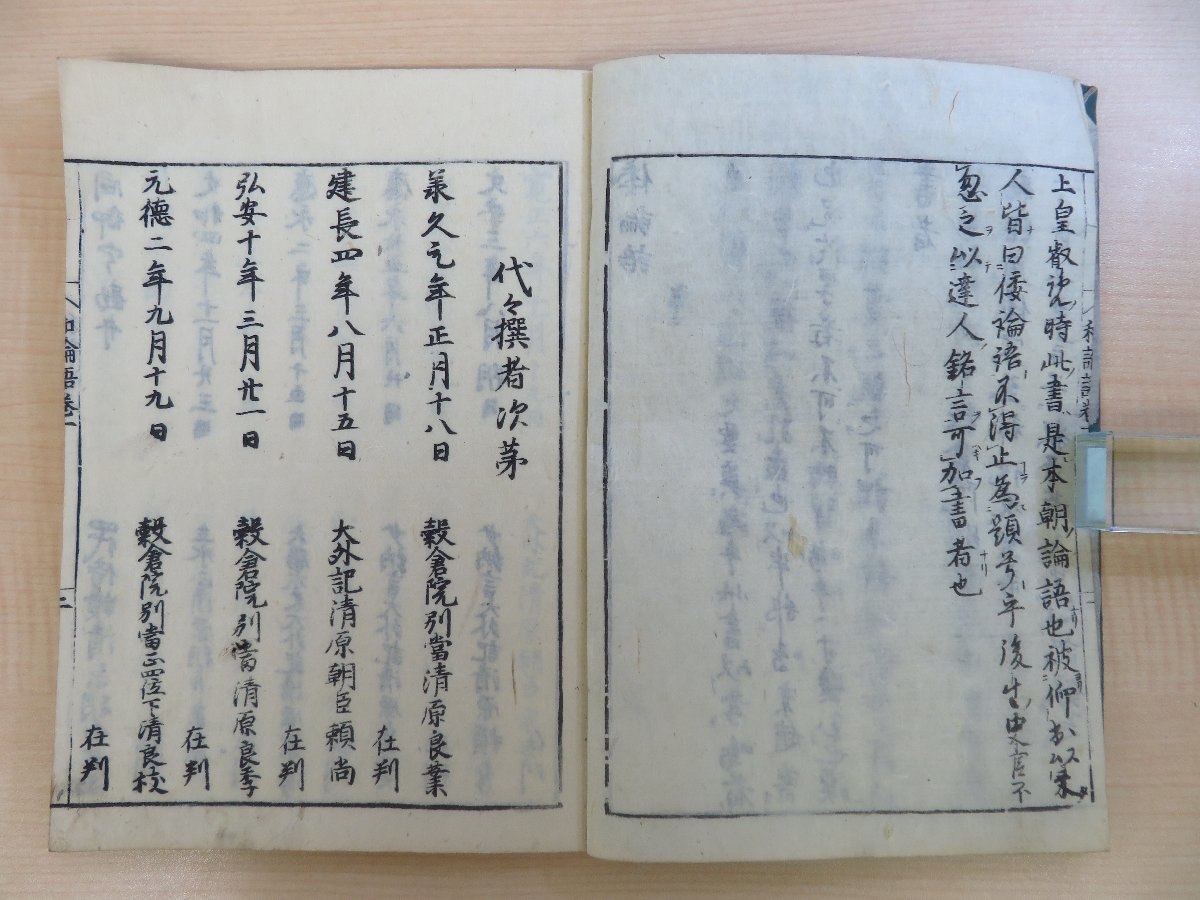 上皇叡覧時此書是本朝論語也被仰出以来
人皆曰倭論語不得止為題号乎後生史官不
忽之以達人銘言可加書者也
代々撰者次第
承久元年正月十八日
穀倉院別當清原良業
在判
建長四年八月十五日
大外記清原朝臣頼尚
在判
弘安十年三月廿一日
穀倉院別當清原良季
在判
元徳二年九月十九日
穀倉院別當正四位下清良枝
在判
和論語巻一
二